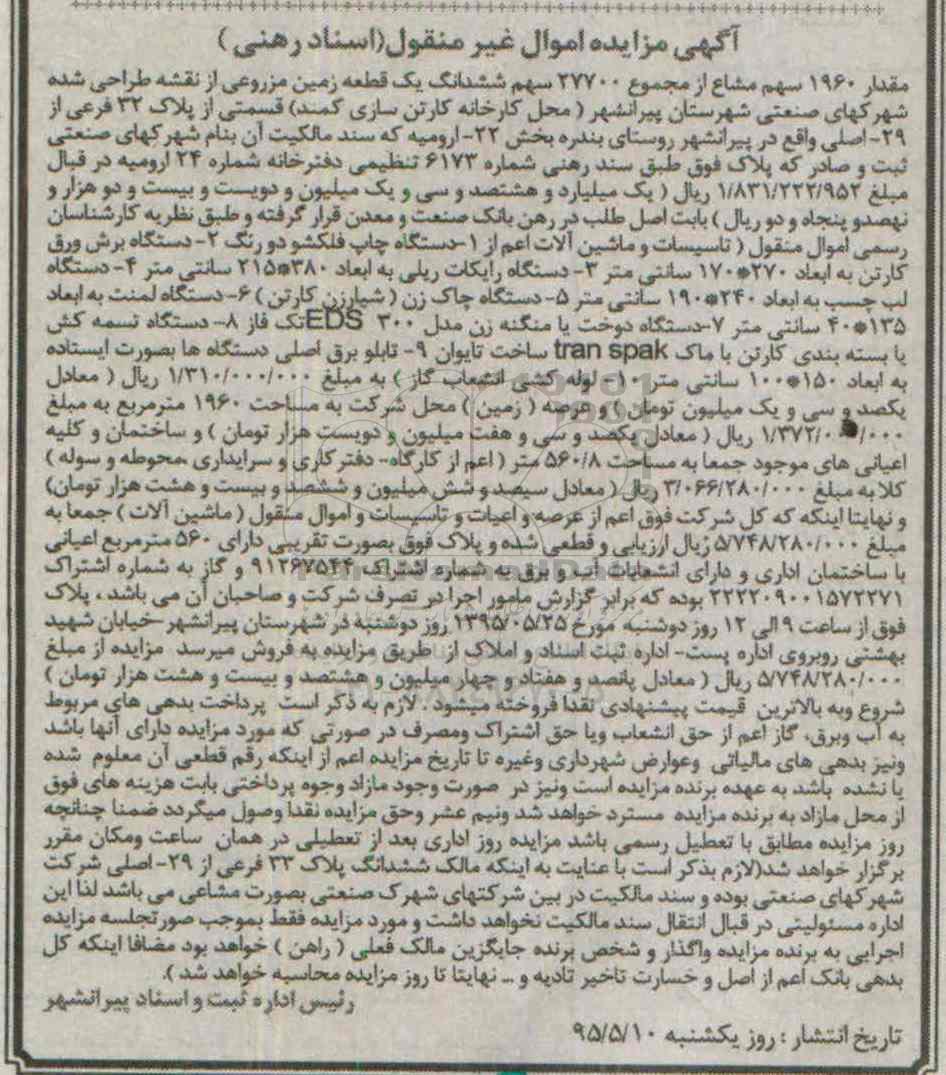 آگهی مزایده اموال غیر منقول(اسناد رهنی )
مقدار ۱۹۶۰ سهم مشاع از مجموع ۲۷۷۰۰ سهم ششدانگ یک قطعه زمین مزروعی از نقشه طراحی شده
شهرکهای صنعتی شهرستان پیرانشهر ( محل کارخانه کارتن سازی کمند) قسمتی از پلاک ۳۲ فرعی از
۲۹- اصلی واقع در پیرانشهر روستای بندره بخش ۲۲-ارومیه که سند مالکیت آن بنام شهرکهای صنعتی
ثبت و صادر که پلاک فوق طبق سند رهنی شماره ۶۱۷۳ تنظیمی دفترخانه شماره ۲۴ ارومیه در قبال
مبلغ ۱/۸۳۱/۲۲۲/۹۵۲ ریال ( یک میلیارد و هشتصد و سی و یک میلیون و دویست و بیست و دو هزار و
نهصدو پنجاه و دو ریال ) بابت اصل طلب در رهن بانک صنعت و معدن قرار گرفته و طبق نظریه کارشناسان
رسمی اموال منقول ( تاسیسات و ماشین آلات اعم از ۱-دستگاه چاپ فلکشو دو رنگ ۲- دستگاه برش ورق
کارتن به ابعاد ۲۷۰*۱۷۰ سانتی متر ۳- دستگاه رایکات ریلی به ابعاد ۳۸۰*۲۱۵ سانتی متر ۴- دستگاه
لب چسب به ابعاد ۲۴۰*۱۹۰ سانتی متر ۵- دستگاه چاک زن ( شیارزن کارتن ) ۶- دستگاه لمنت به ابعاد
۱۳۵*۴۰ سانتی متر ۷-دستگاه دوخت یا منگنه زن مدل EDS ۳۰۰تک فاز ۸- دستگاه تسمه کش
یا بسته بندی کارتن با ماک tran spak ساخت تایوان ۹- تابلو برق اصلی دستگاه ها بصورت ایستاده
به ابعاد ۱۵۰*۱۰۰ سانتی متر ۱۰- لوله کشی انشعاب گاز ) به مبلغ ۱/۳۱۰/۰۰۰/۰۰۰ ریال ( معادل
یکصد و سی و یک میلیون تومان ) و عرصه ( زمین ) محل شرکت به مساحت ۱۹۶۰ مترمربع به مبلغ
۱/۳۷۲/۰۰۰/۰۰۰ ریال ( معادل یکصد و سی و هفت میلیون و دویست هزار تومان ) و ساختمان و کلیه
اعیانی های موجود جمعا به مساحت ۵۶۰/۸ متر ( اعم از کارگاه- دفتر کاری و سرایداری ،محوطه و سوله )
کلا به مبلغ ۳/۰۶۶/۲۸۰/۰۰۰ ریال ( معادل سیصد و شش میلیون و ششصد و بیست و هشت هزار تومان)
و نهایتا اینکه که کل شرکت فوق اعم از عرصه و اعیات و تاسیسات و اموال منقول ( ماشین آلات ) جمعا به
مبلغ ۵/۷۴۸/۲۸۰/۰۰۰ ریال ارزیابی و قطعی شده و پلاک فوق بصورت تقریبی دارای ۵۶۰ مترمربع اعیانی
با ساختمان اداری و دارای انشعابات آب و برق به شماره اشتراک ۹۱۲۶۷۵۴۴ و گاز به شماره اشتراک
۲۲۲۲۰۹۰۰۱۵۷۲۲۷۱ بوده که برابر گزارش مامور اجرا در تصرف شرکت و صاحبان آن می باشد ، پلاک
فوق از ساعت ۹ الی ۱۲ روز دوشنبه مورخ ۱۳۹۵/۰۵/۲۵ روز دوشنبه در شهرستان پیرانشهر -خیابان شهید
بهشتی روبروی اداره پست- اداره ثبت اسناد و املاک از طریق مزایده به فروش میرسد مزایده از مبلغ
۵/۷۴۸/۲۸۰/۰۰۰ ریال ( معادل پانصد و هفتاد و چهار میلیون و هشتصد و بیست و هشت هزار تومان )
شروع وبه بالاترین قیمت پیشنهادی نقدا فروخته میشود . لازم به ذکر است پرداخت بدهی های مربوط
به آب وبرق، گاز اعم از حق انشعاب ویا حق اشتراک ومصرف در صورتی که مورد مزایده دارای آنها باشد
ونیز بدهی های مالیاتی وعوارض شهرداری وغیره تا تاریخ مزایده اعم از اینکه رقم قطعی آن معلوم شده
یا نشده باشد به عهده برنده مزایده است ونیز در صورت وجود مازاد وجوه پرداختی بابت هزینه های فوق
از محل مازاد به برنده مزایده مسترد خواهد شد ونیم عشر وحق مزایده نقدا وصول میگردد ضمنا چنانچه
روز مزایده مطابق با تعطیل رسمی باشد مزایده روز اداری بعد از تعطیلی در همان ساعت ومکان مقرر
برگزار خواهد شد(لازم بذکر است با عنایت به اینکه مالک ششدانگ پلاک ۳۳ فرعی از ۲۹- اصلی شرکت
شهرکهای صنعتی بوده و سند مالکیت در بین شرکتهای شهرک صنعتی بصورت مشاعی می باشد لذا این
اداره مسئولیتی در قبال انتقال سند مالکیت نخواهد داشت و مورد مزایده فقط بموجب صورتجلسه مزایده
اجرایی به برنده مزایده واگذار و شخص برنده جایگزین مالک فعلی ( راهن ) خواهد بود مضافا اینکه کل
بدهی بانک اعم از اصل و خسارت تاخیر تادیه و ... نهایتا تا روز مزایده محاسبه خواهد شد ).
رئیس اداره ثبت و اسناد پیرانشهر
تاریخ انتشار : روز یکشنبه ۹۵/۵/۱۰